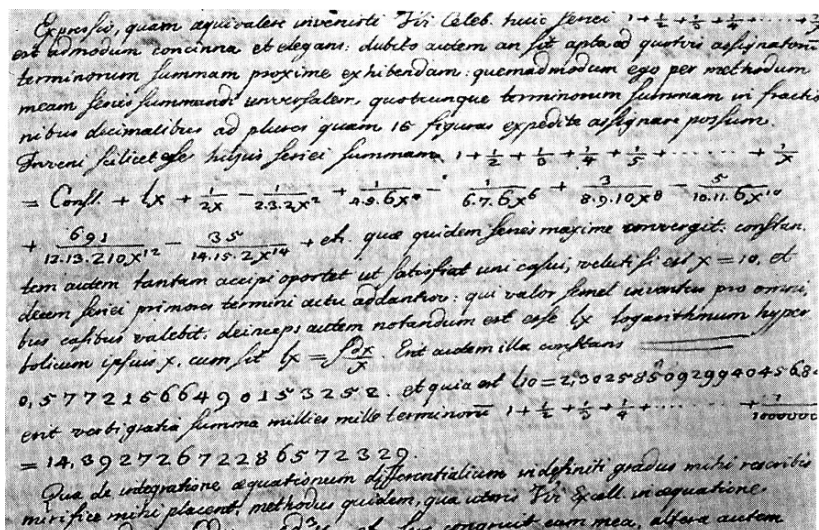 Expressio, quam aequivalere invenisti Vir Celeb. huic seriei 1+1/2+1/3+1/4+ . . . . . . 1/x
est admodum concinna et elegans: dubito autem an sit apta ad quotvis assignatorum
terminorum summam proxime exhibendam: quemadmodum ego per methodum
meam series summandi universalem, quotcunque terminorum summam in fractio
nibus decimalibus ad plures quam 15 figuras expedite assignare possum.
Inveni scilicet esse hujus seriei summam 1+1/2+1/3+1/4+1/5+ . . . . . . +1/x
= Const. + lx + 1/2x − 1/2.3.2x^2 + 1/4.5.6x^4 − 1/6.7.6x^6 + 3/8.9.10x^8 − 5/10.11.6x^10
+ 691/12.13.210x^12 − 35/14.15.2x^14 + etc. quae quidem series maxime convergit: constan
tem autem tantam accipi oportet ut satisfiat uni casui, veluti si est x=10, et
decem seriei primores termini actu addantur: qui valor semel inventus pro omni
bus casibus valebit. deinceps autem notandum est esse lx logarithmum hyper
bolicum ipsius x, cum sit lx = ∫dx/x. Erit autem illa constans
0,5772156649015325 2. et quia est l10=2,302585092994045684
erit verbi gratia summa millies mille terminorum 1+1/2+1/3+1/4+ . . . . . . +1/1000000
=14,392726722865 72329.
Qua de integratione aequationum differentialium indefiniti gradus mihi rescribis
mirifice mihi placent, methodus quidem, qua uteris Vir Excell. in aequatione
congruit cum mea, altera autem